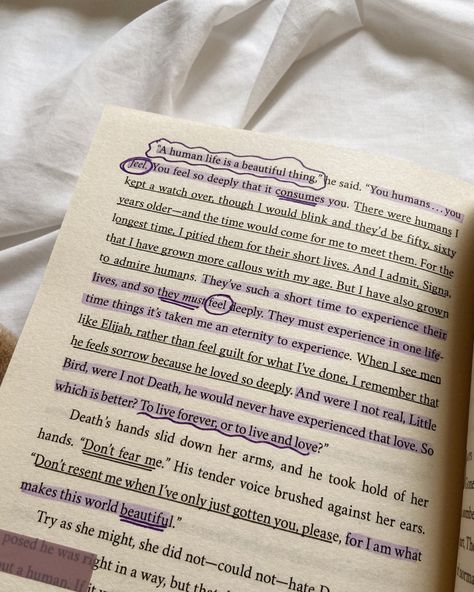 "A human life is a beautiful thing," he said. "You humans . . . you
feel. You feel so deeply that it consumes you. There were humans I
kept a watch over, though I would blink and they'd be fifty, sixty
years older—and the time would come for me to meet them. For the
longest time, I pitied them for their short lives. And I admit, Signa,
that I have grown more callous with my age. But I have also grown
to admire humans. They've such a short time to experience their
lives, and so they must feel deeply. They must experience in one life-
time things it's taken me an eternity to experience. When I see men
like Elijah, rather than feel guilt for what I've done, I remember that
he feels sorrow because he loved so deeply. And were I not real, Little
Bird, were I not Death, he would never have experienced that love. So
which is better? To live forever, or to live and love?"
Death's hands slid down her arms, and he took hold of her
hands. "Don't fear me." His tender voice brushed against her ears.
"Don't resent me when I've only just gotten you, please, for I am what
makes this world beautiful."
Try as she might, she did not—could not—hate D
posed he was right in a way, but that
ut a human. If it